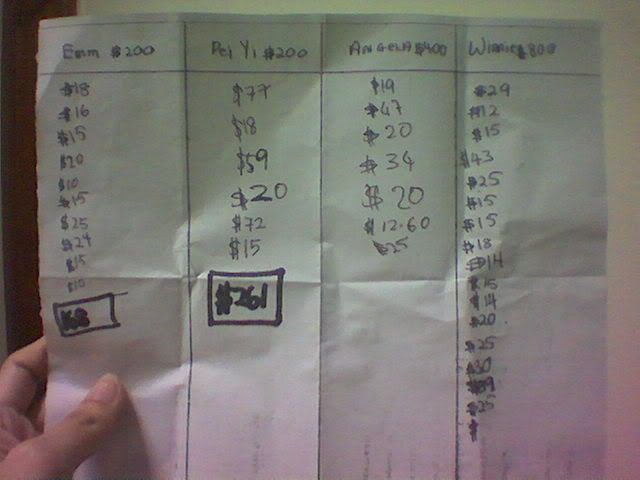 Emm $200
$18
$16
$15
$20
$10
$15
$25
$24
$15
$10
168
Pei Yi $200
$77
$18
$59
$20
$72
$15
$261
Angela $400
$19
$47
$20
$34
$20
$12.60
$25
Winnie $800
$29
$12
$15
$43
$25
$15
$15
$18
$14
$15
$14
$20
$25
$30
$25
$